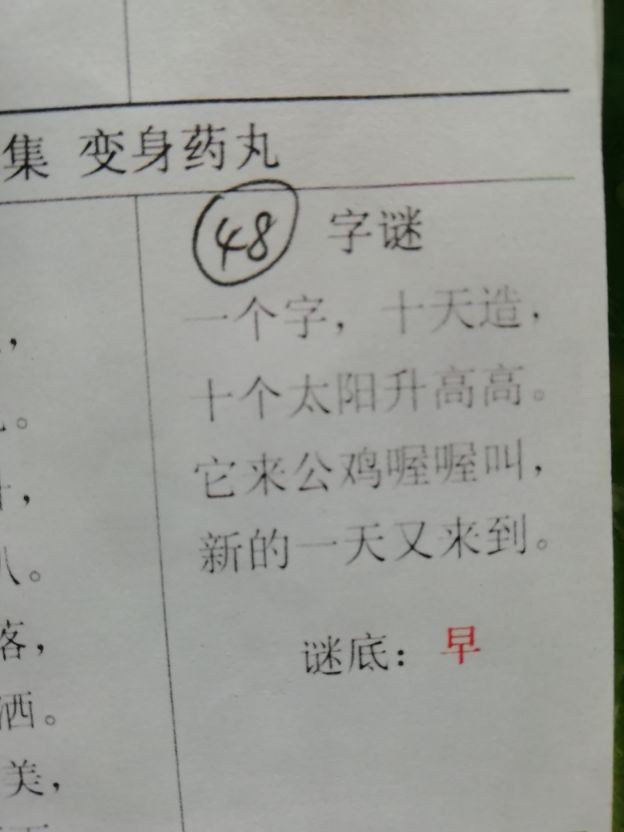 集 变身药丸
48 字谜
一个字，十天造，
十个太阳升高高。
它来公鸡喔喔叫，
新的一天又来到。
谜底：早
，
。
，
八。
客，
洒。
美，